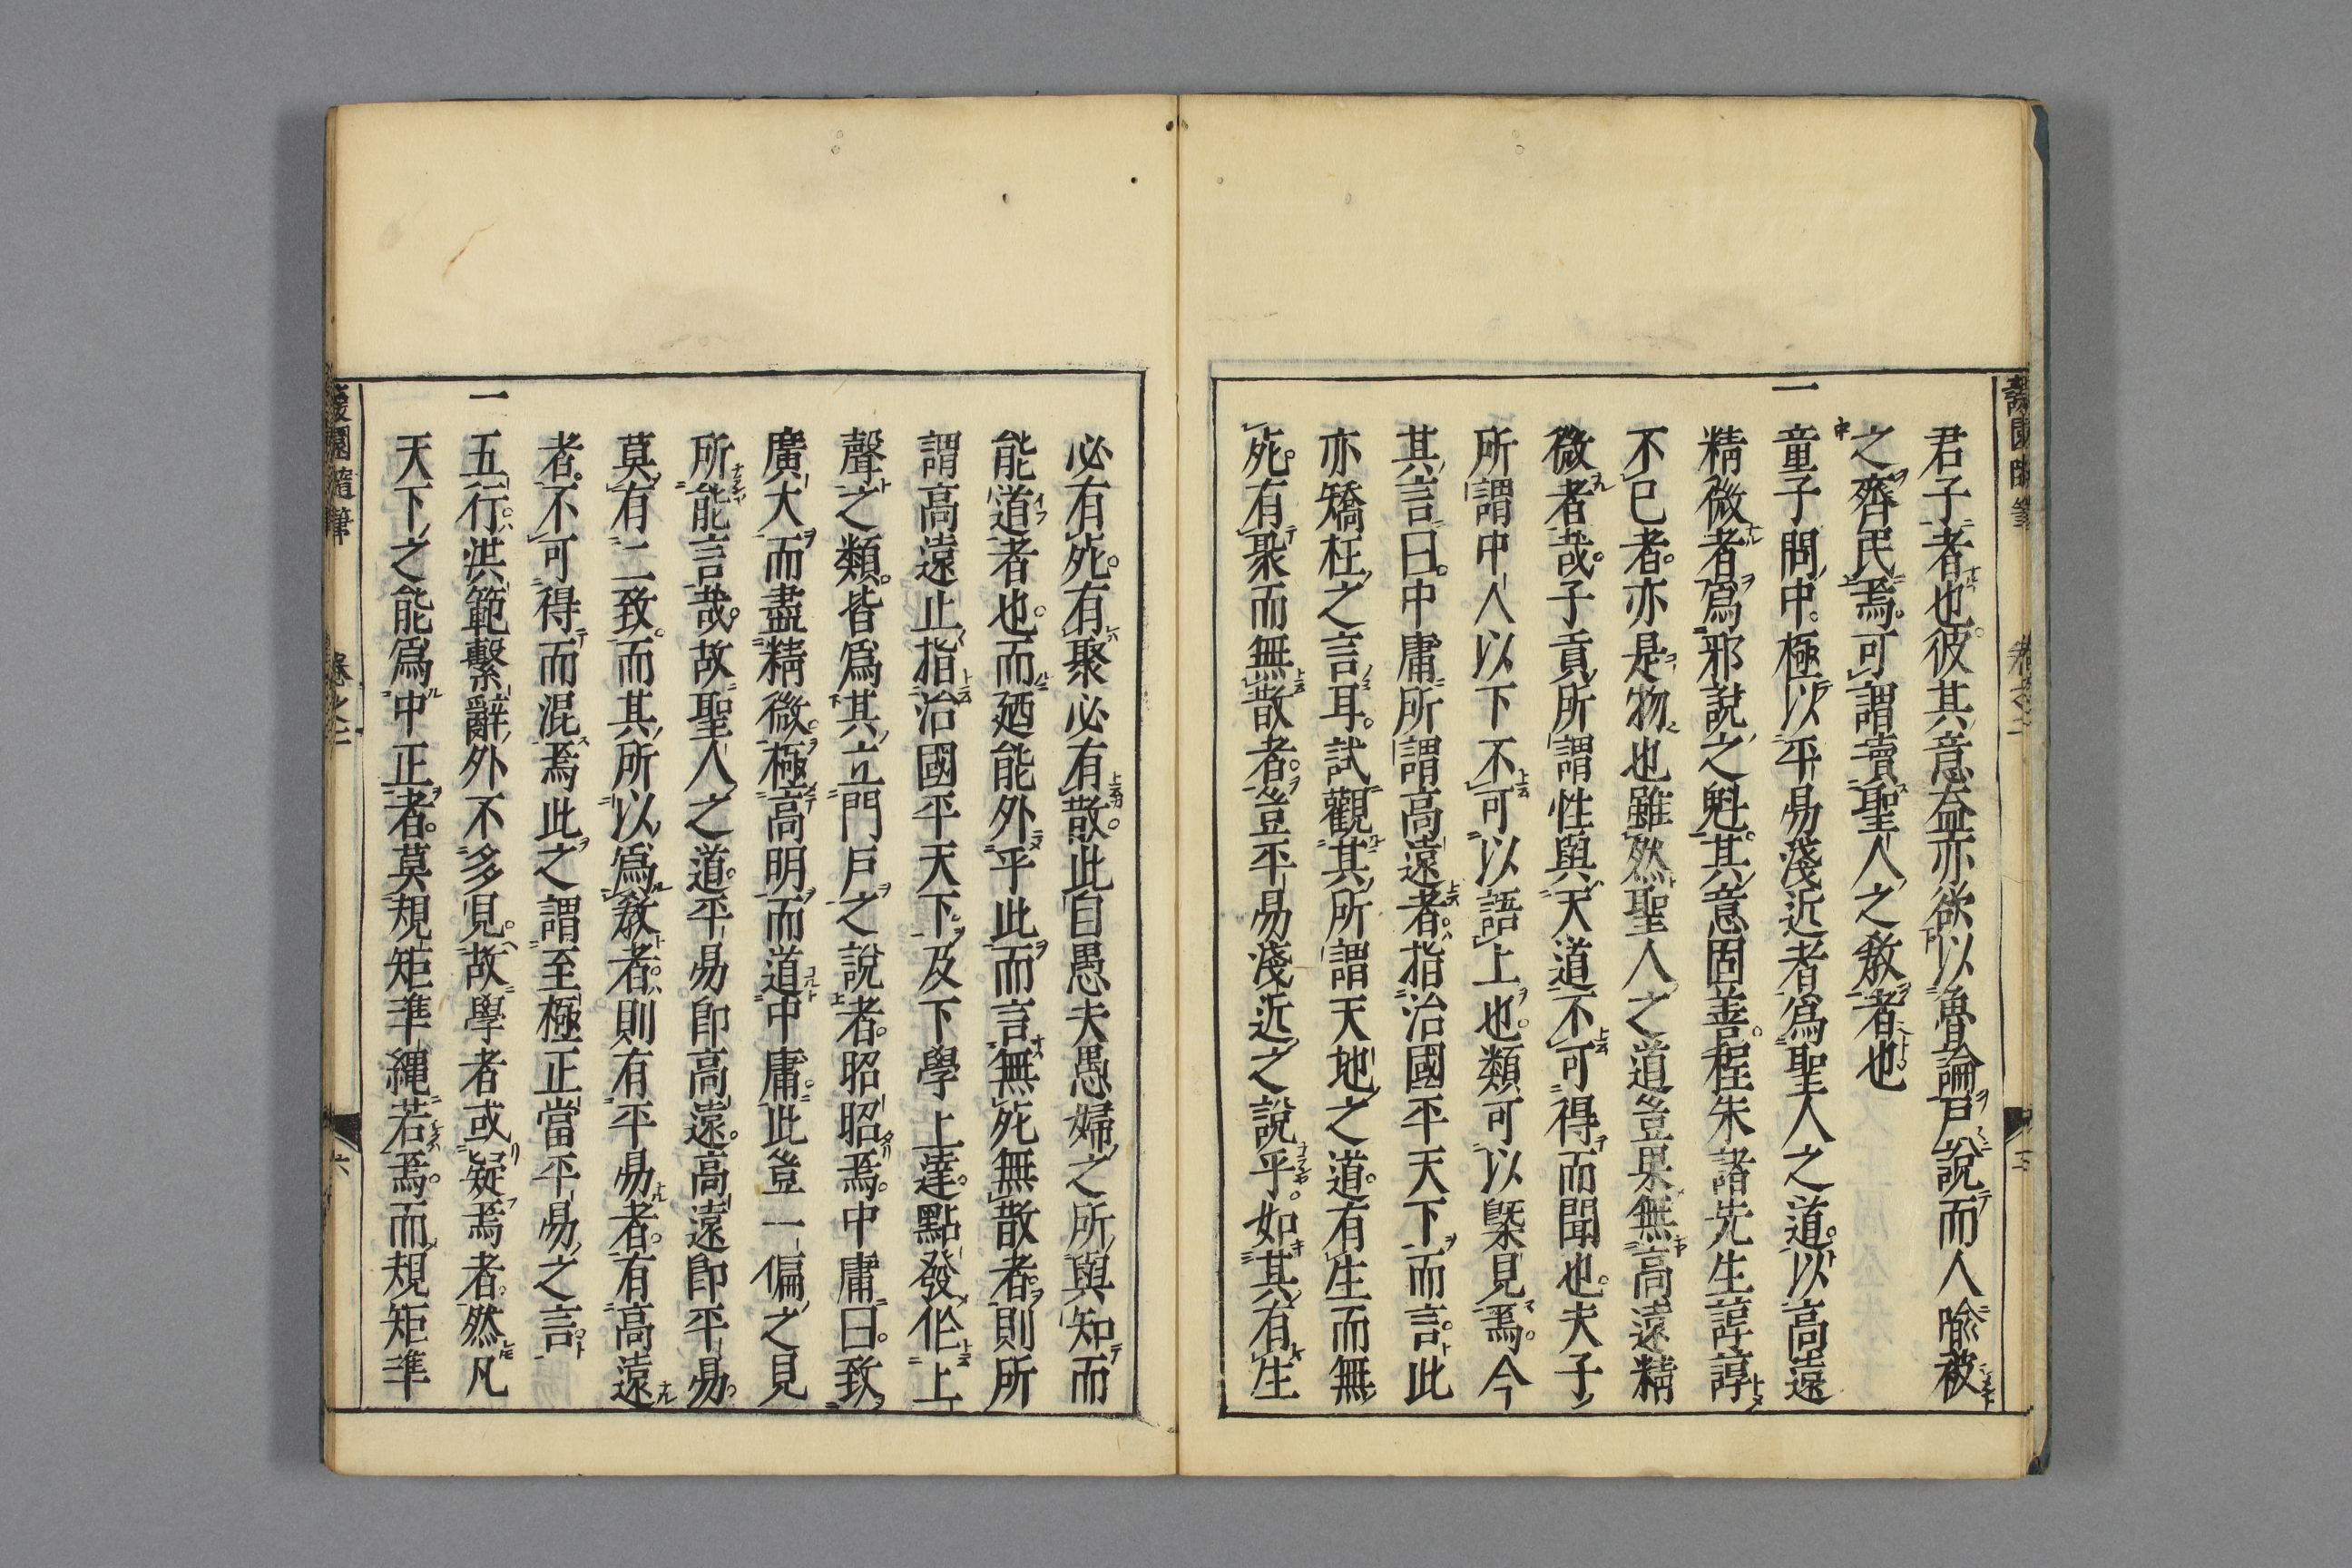 君子者也。彼其意益亦欲以魯論戸說而人喩被
之齊民焉。可謂瀆聖人之敎者也
一童子問中。極以平易淺近者爲聖人之道。以高遠
精微者爲邪說之魁。其意固善。程朱諸先生諄諄
不已者。亦是物也雖然聖人之道豈果無高遠精
微者哉。子貢所謂性與天道不可得而聞也。夫子
所謂中人以下不可以語上也。類可以槩見焉。今
其言曰。中庸所謂高遠者。指治國平天下而言。此
亦矯枉之言耳。試觀其所謂天地之道。有生而無
死。有聚而無散者。豈平易淺近之說乎。如其有生
必有死。有聚必有散。此自愚夫愚婦之所與知而
能道者也。而廼能外乎此而言無死無散者。則所
謂高遠止指治國平天下。及下學上達。點發伫上
聲之類。皆爲其立門戸之說者。昭昭焉。中庸曰。致
廣大而盡精微。極高明而道中庸。此豈一偏之見
所能言哉。故聖人之道。平易卽高遠。高遠卽平易。
莫有二致。而其所以爲敎者。則有平易者。有高遠
者。不可得而混焉此之謂至極正當平易之言
一五行。洪範繫辭外不多見。故學者或疑焉者。然凡
天下之能爲中正者。莫規矩準繩若焉。而規矩準
護園隨筆 卷之二 六